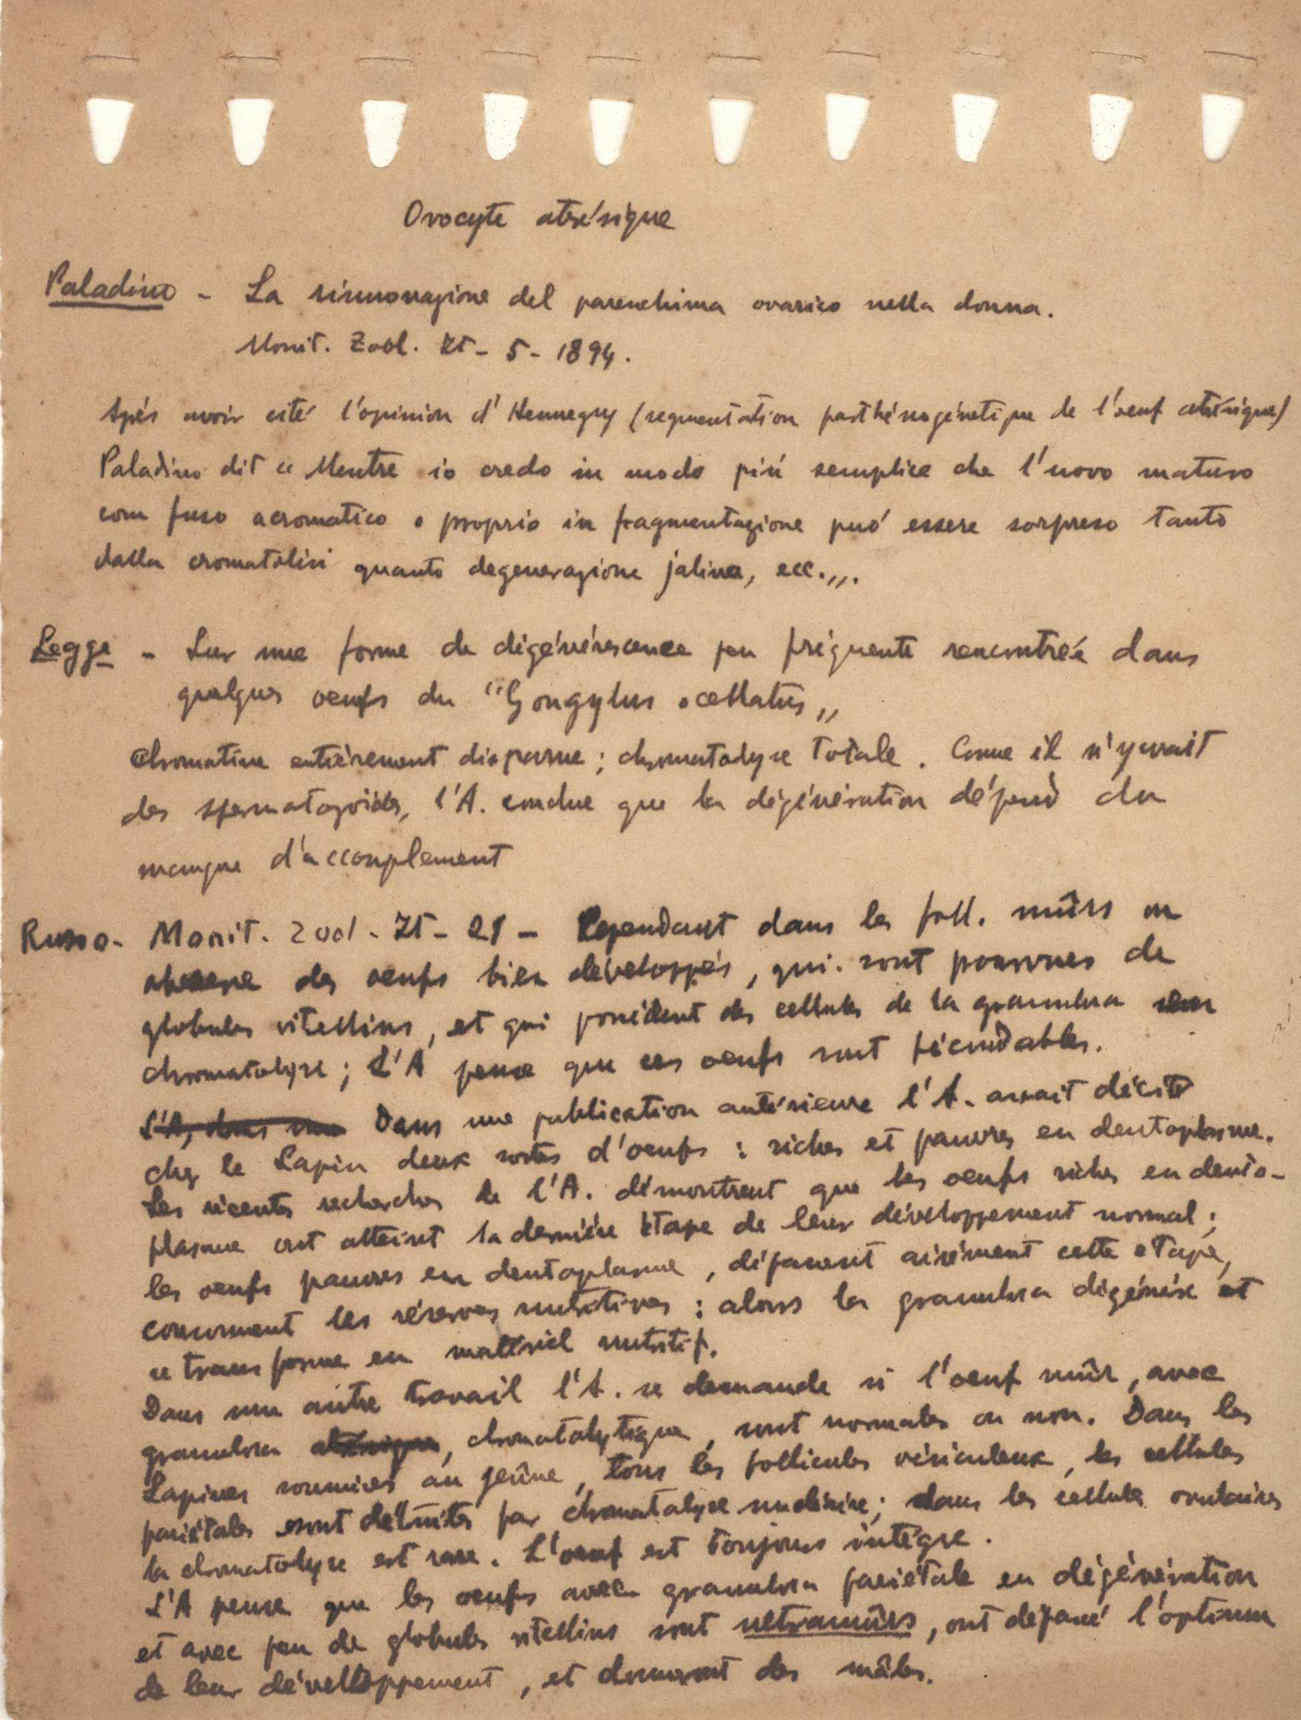 Ovocyte atrésique
Paladino - La rinnovazione del parenchima ovarico nella donna.
Monit. Zool. It - 5 - 1894.
Après avoir cité l'opinion d'Hennegny (segmentation parthénogénetique de l'oeuf atrésique)
Paladino dit « Mentre io credo in modo piú semplice che l'uovo maturo
com fuso acromatico o proprio in fragmentazione puó essere sorpreso tanto
dalla cromatolisi quanto degenerazione jalina, ecc.,,.
Legge - Sur une forme de dégénérescence peu fréquente rencontrée dans
quelques oeufs du "Gongylus ocellatus,,
Chromatine entièrement disparue; chromatolyse totale. Come il n'y avait
des spermatozoides, l'A. conclue que la dégénération dépend du
manque d'accouplement
Russo - Monit. Zool - It - 21 - Cependant dans les foll. mûrs on
observe des oeufs bien développés, qui sont pourvues de
globules vitellins, et qui possèdent des cellules de la granulosa en
chromatolyse; L'A pense que ces oeufs sont fécondables.
L'A, dans une Dans une publication antérieure l'A. avait décrit
chez le Lapin deux sortes d'oeufs : riches et pauvres en deutoplasme.
Les récentes recherches de l'A. démontrent que les oeufs riches en deuto-
plasme ont atteint la dernière étape de leur développement normal;
les oeufs pauvres en deutoplasme, dépassent aisément cette etape,
consomment les réserves nutritives : alors la granulosa dégénère et
se transforme en matériel nutritif.
Dans une autre travail l'A. se demande si l'oeuf mûr, avec
granulosa atrésique, chromatolytique, sont normales ou non. Dans les
Lapines soumises au jeûne, tous les follicules vésiculeux, les cellules
pariétales sont détruites par chromatolyse nucléaire; dans les cellules ovulaires
la chromatolyse est rare. L'oeuf est toujours intègre.
L'A pense que les oeufs avec granulosa parietale en dégénération
et avec peu de globules vitellins sont ultramûrs, ont dépassé l'optimum
de leur dévelloppement, et donneront des mâles.